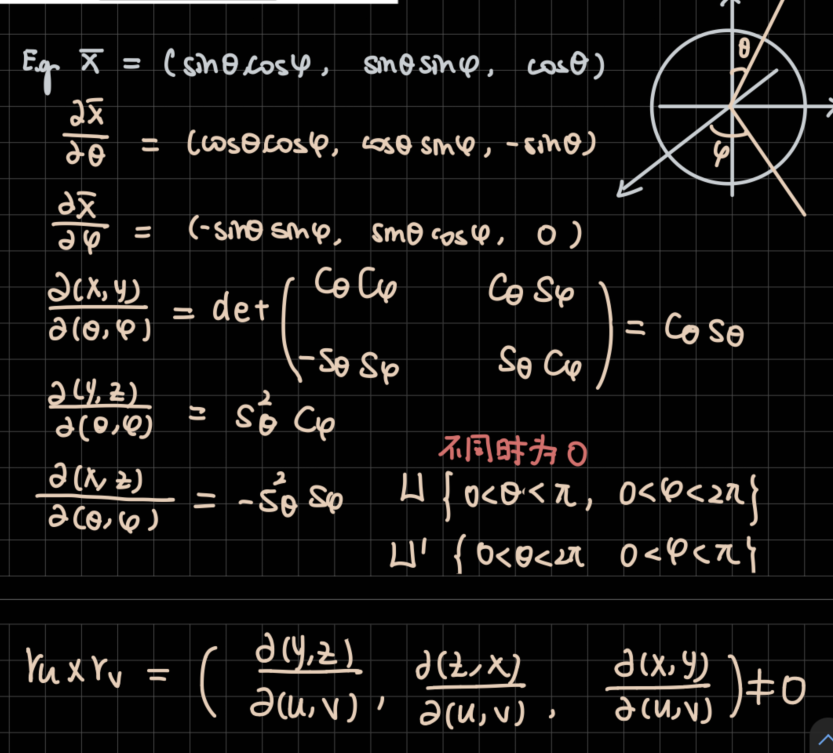 E.g. x̄ = (sinθcosφ, sinθsinφ, cosθ)
θ
φ
∂x̄/∂θ = (cosθcosφ, cosθsinφ, -sinθ)
∂x̄/∂φ = (-sinθsinφ, sinθcosφ, 0)
∂(x,y)/∂(θ,φ) = det( CθCφ CθSφ
-SθSφ SθCφ ) = CθSθ
∂(y,z)/∂(θ,φ) = S²θ Cφ
不同时为0
∂(x,z)/∂(θ,φ) = -S²θ Sφ
U {0<θ<π, 0<φ<2π}
U' {0<θ<2π 0<φ<π}
ru×rv = ( ∂(y,z)/∂(u,v), ∂(z,x)/∂(u,v), ∂(x,y)/∂(u,v) ) ≠ 0